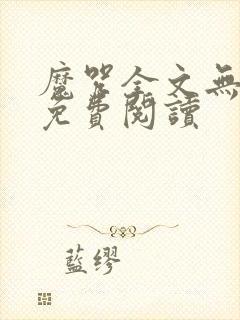 魔咒全文無
免費閱讀
藍缪